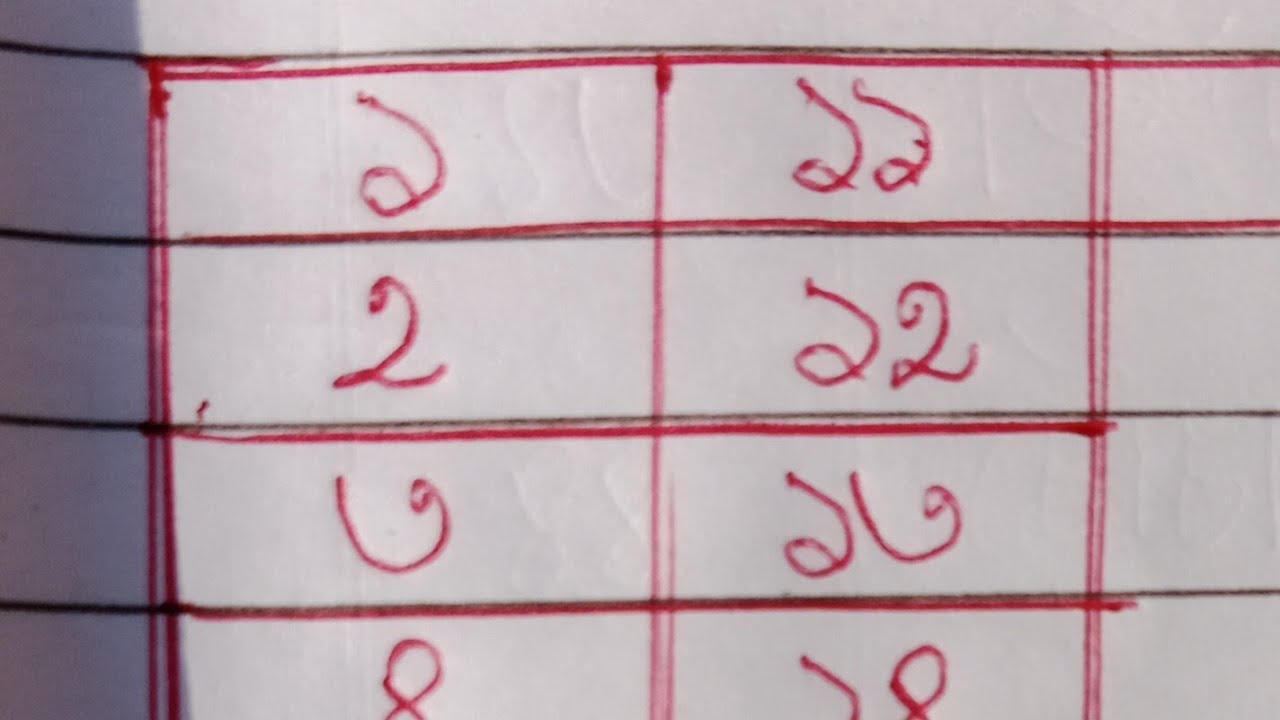 ১ ১১
২ ১২
৩ ১৩
৪ ১৪